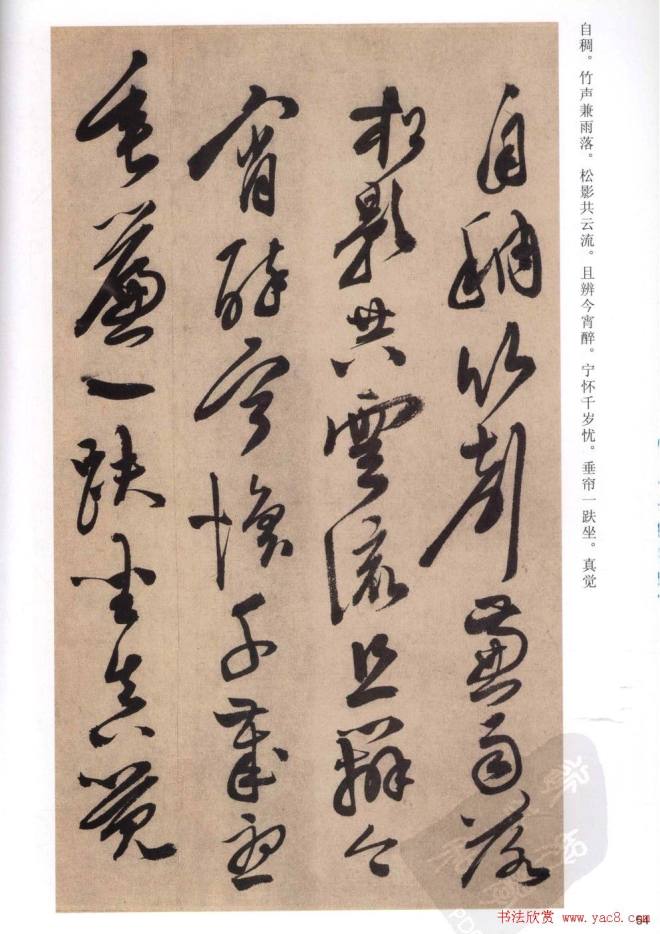 自稠。竹声兼雨落。松影共云流。且辨今宵醉。宁怀千岁忧。垂帘一趺坐。真觉
自稠竹聲兼雨落
松影共雲流且辨今
宵醉寧懷千歲憂
垂簾一趺坐真覺
54
书法欣赏 www.yac8.com